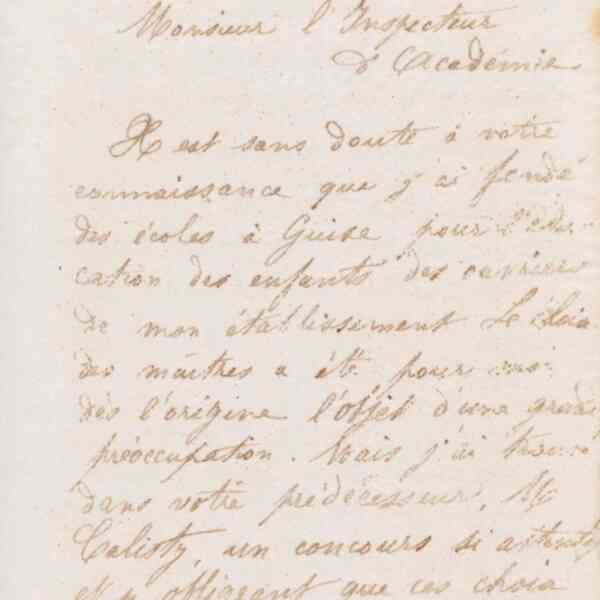 Monsieur l'Inspecteur
d'Académie
Il est sans doute à votre
connaissance que j'ai fondé
des écoles à Guise pour l'édu
cation des enfants des ouvriers
de mon établissement Le choix
des maîtres a été pour moi
dès l'origine l'objet d'une grande
préoccupation. Mais j'ai trouvé
dans votre prédécesseur, Mr
un concours si
et si obligeant que ces choix